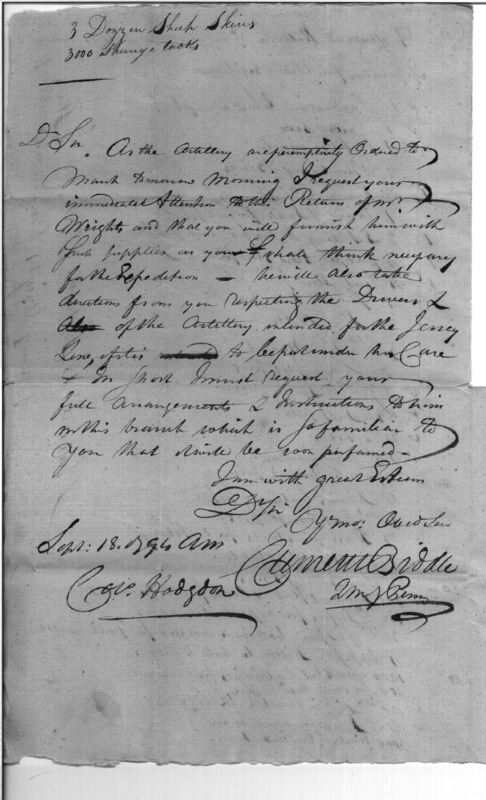 3 Dozzen Sheep Skins
3000 Spunge tacks
Dr Sir. As the Artillery are peremptorily Ordered to
March tomorrow Morning I request your
immediate Attention to the Return of Mr
Wright and that you will furnish him with
Such Supplies as you shall think necessary
for the Expedition — he will also take
directions from you respecting the Drivers &
Also of the Artillery intended for the Jersey
Line, if it is intended to be put under his Care
& In short I must request your
full Arrangements & Instructions to him
in this branch which is so familiar to
You that it will be soon performed —
I am with great Esteem
Dr Sir
Yr mo: Obed Ser
Sept: 18. 1794 Am
Clement Biddle
Colo. Hodgdon
QMG Penn